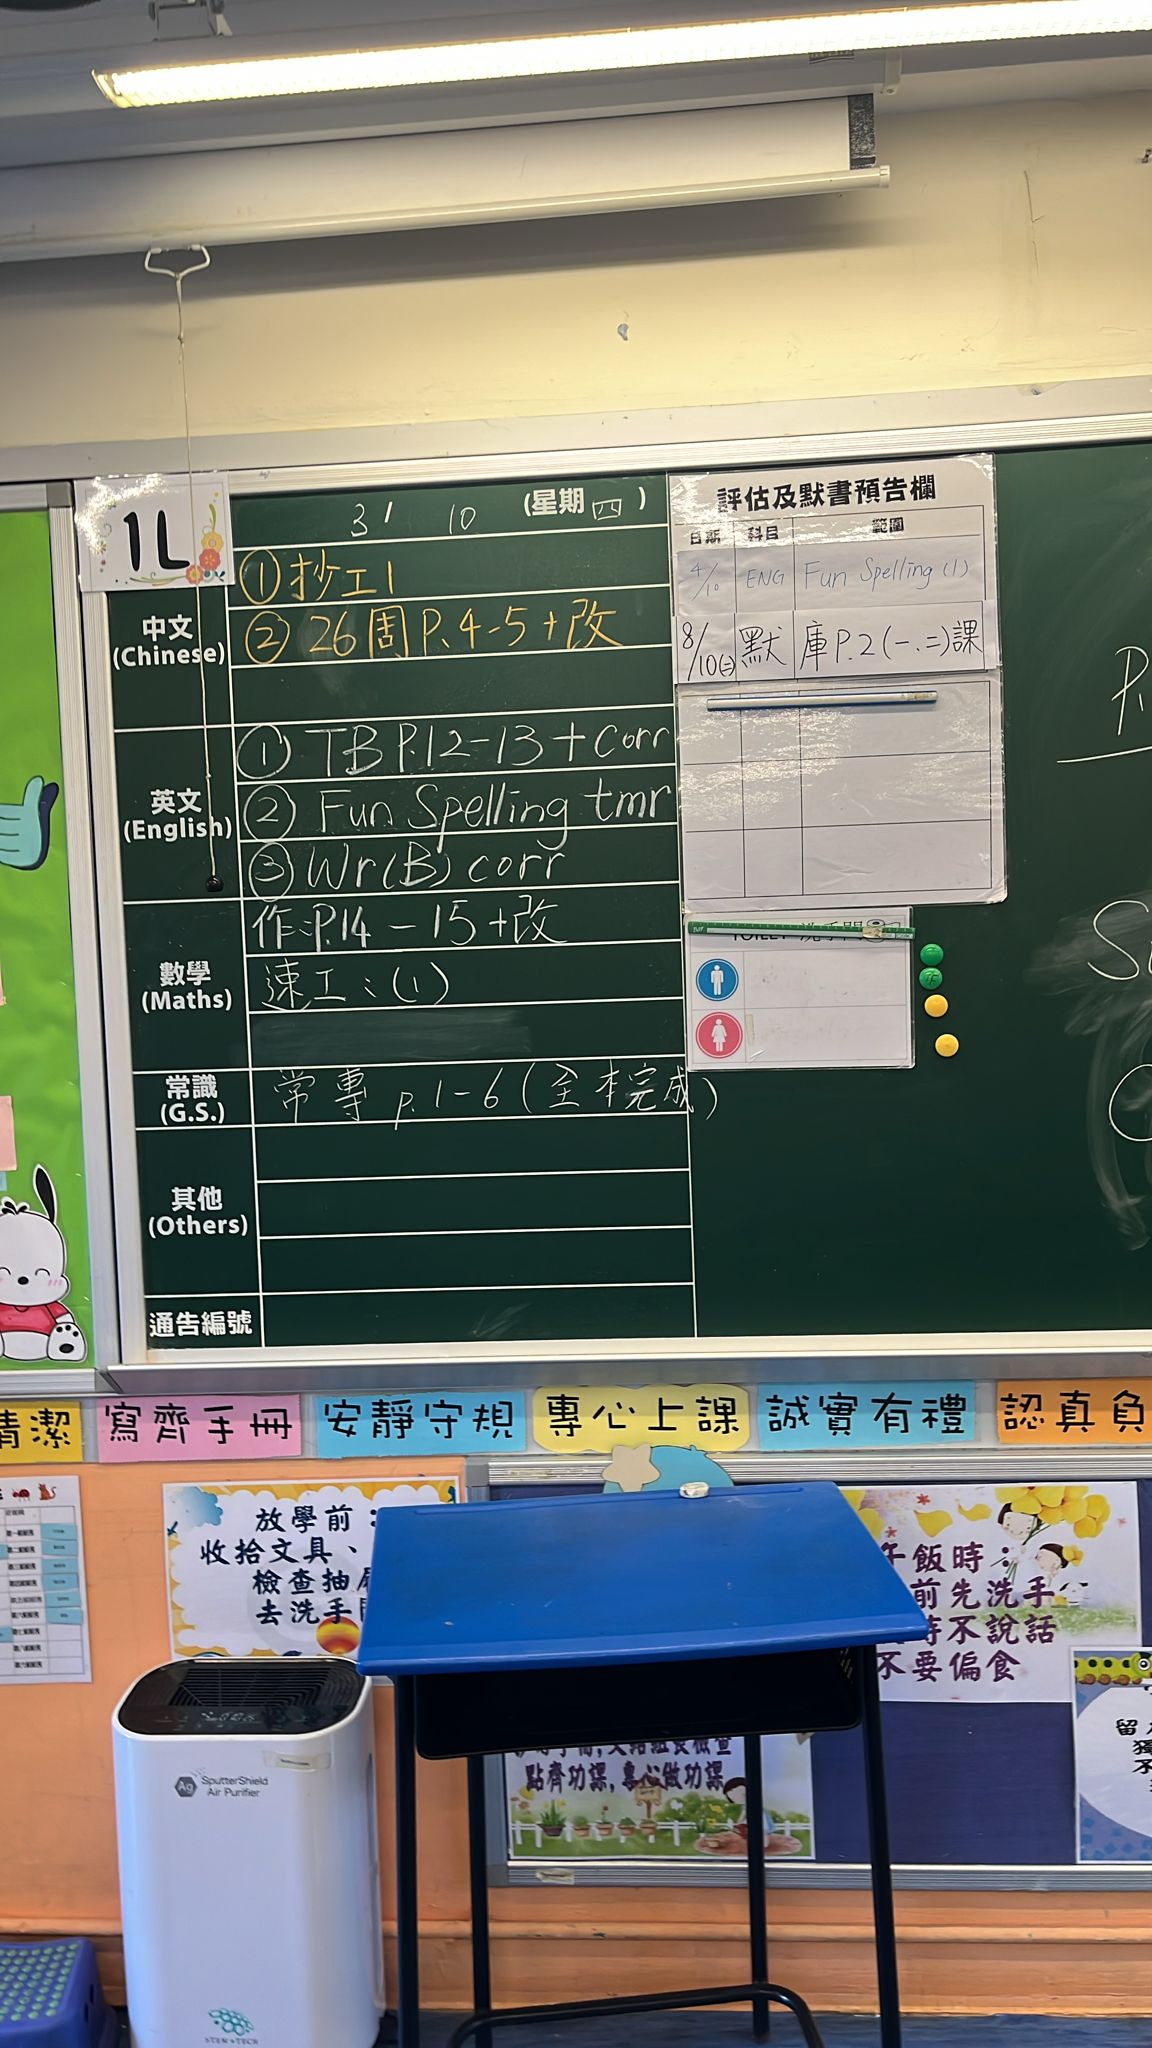 1L
3 / 10 (星期四)
中文
(Chinese)
① 抄工1
② 26周P.4-5+改
英文
(English)
① TB P.12-13 + corr
② Fun Spelling tmr
③ Wr(B) corr
數學
(Maths)
作:P.14 - 15 +改
速工:(1)
常識
(G.S.)
常專 p.1-6 (全本完成)
其他
(Others)
通告編號
評估及默書預告欄
日期 科目 範圍
4/10 ENG Fun Spelling (1)
8/10(二) 默 庫P.2(一.二)課
P.
清潔
寫齊手冊
安靜守規
專心上課
誠實有禮
認真負
放學前:
收拾文具、
檢查抽
去洗手
飯時:
前先洗手
時不說話
不要偏食
點齊功課,專心做功課
留
獨
不
Ag SputterShield
Air Purifier
STEM+TECH